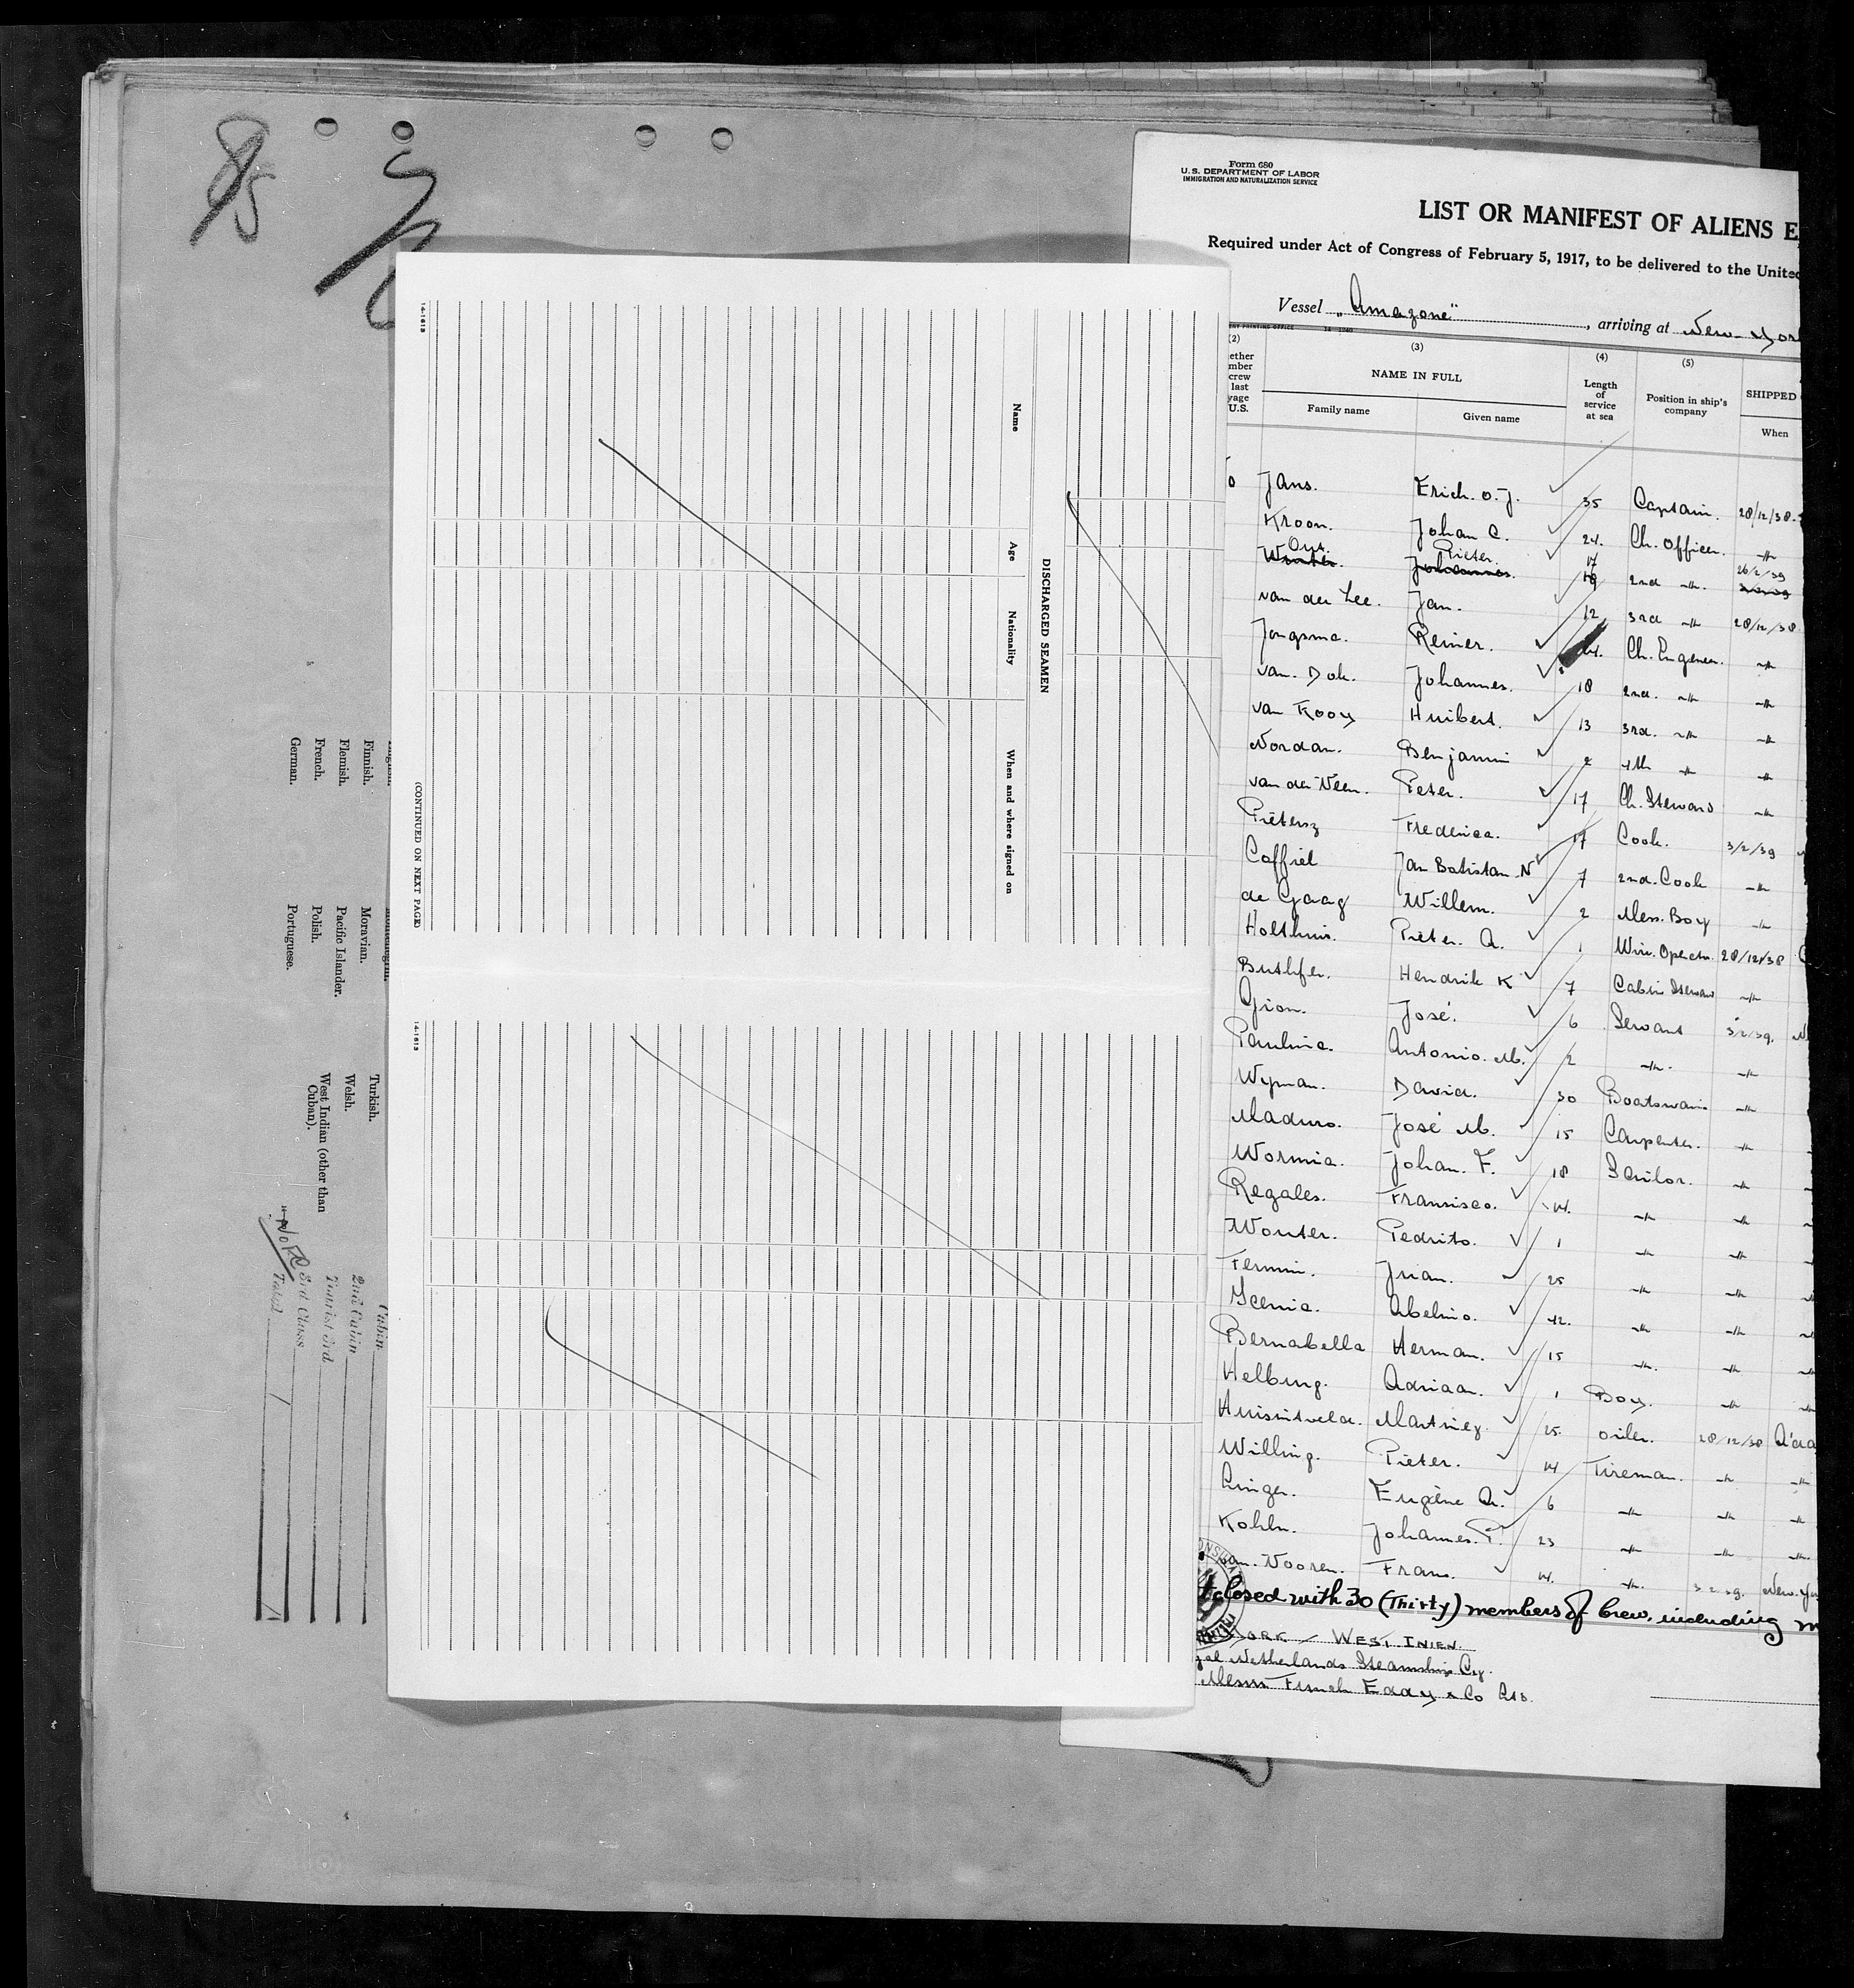 85
Form 680
U.S. DEPARTMENT OF LABOR
IMMIGRATION AND NATURALIZATION SERVICE
LIST OR MANIFEST OF ALIENS E
Required under Act of Congress of February 5, 1917, to be delivered to the United
Vessel „Amazone" , arriving at New-York
(2) (3) (4) (5)
NAME IN FULL Length of service at sea Position in ship's company SHIPPED
Family name Given name When
Jans. Erich. O. J. 35 Captain. 28/12/38
Kroon. Johan C. 24. Ch. Officer. -"-
Out. Pieter. 17 26/2/39
Wouter. Johannes. 19 2nd -"-
van der Lee. Jan. 12 3rd -"- 28/12/38
Jongsma. Reiner. Ch. Engeneer. -"-
van Dok. Johannes. 18 2nd. -"- -"-
van Kooy Huibert. 13 3rd. -"- -"-
Nordan. Benjamin 2 4th -"- -"-
van der Veen. Peter. 17 Ch. Steward -"-
Pietersz Frederica. 17 Cook. 3/2/39
Coffriel Jan Batistan. N 7 2nd. Cook -"-
de Gaag Willem. 2 Mess. Boy -"-
Holthuis. Pieter. A. 1 Wire. Operator. 28/12/38
Hendrik K 7 Cabin Steward -"-
José. 6 Servant 3/2/39.
Paulina. Antonio. M. 2 -"- -"-
Wyman. David. 30 Boatswain -"-
Maduro. José M. 15 Carpenter. -"-
Wormia. Johan. F. 18 Sailor. -"-
Regales. Fransisco. 14. -"- -"-
Wouter. Pedrito. 1 -"- -"-
Fermin. Juan. 25 -"- -"-
Abelino. 12. -"- -"-
Bernabella Herman. 15 -"- -"-
Helburg. Adriaan. 1 Boy. -"-
Huisintveld. 25. oiler. 28/12/38 A'da
Willing. Pieter. 14 Fireman. -"- -"-
Linger. Eugène A. 6 -"- -"-
Kohln. Johannes. P. 23 -"- -"- -"-
van. Vooren. Frans. 14. -"- 3 2 39. New. Yor
closed with 30 (Thirty) members of Crew, including m
YORK - WEST INIEN.
Netherlands Steamship Cy.
Messrs Funch Eddy & Co
14-1613
Name
Age
Nationality
When and where signed on
DISCHARGED SEAMEN
(CONTINUED ON NEXT PAGE)
14-1613
Finnish.
Flemish.
French.
German.
Moravian.
Pacific Islander.
Polish.
Portuguese.
Turkish.
Welsh.
West Indian (other than
Cuban).
Cabin
2nd Cabin
Tourist 3rd
3rd Class
Total